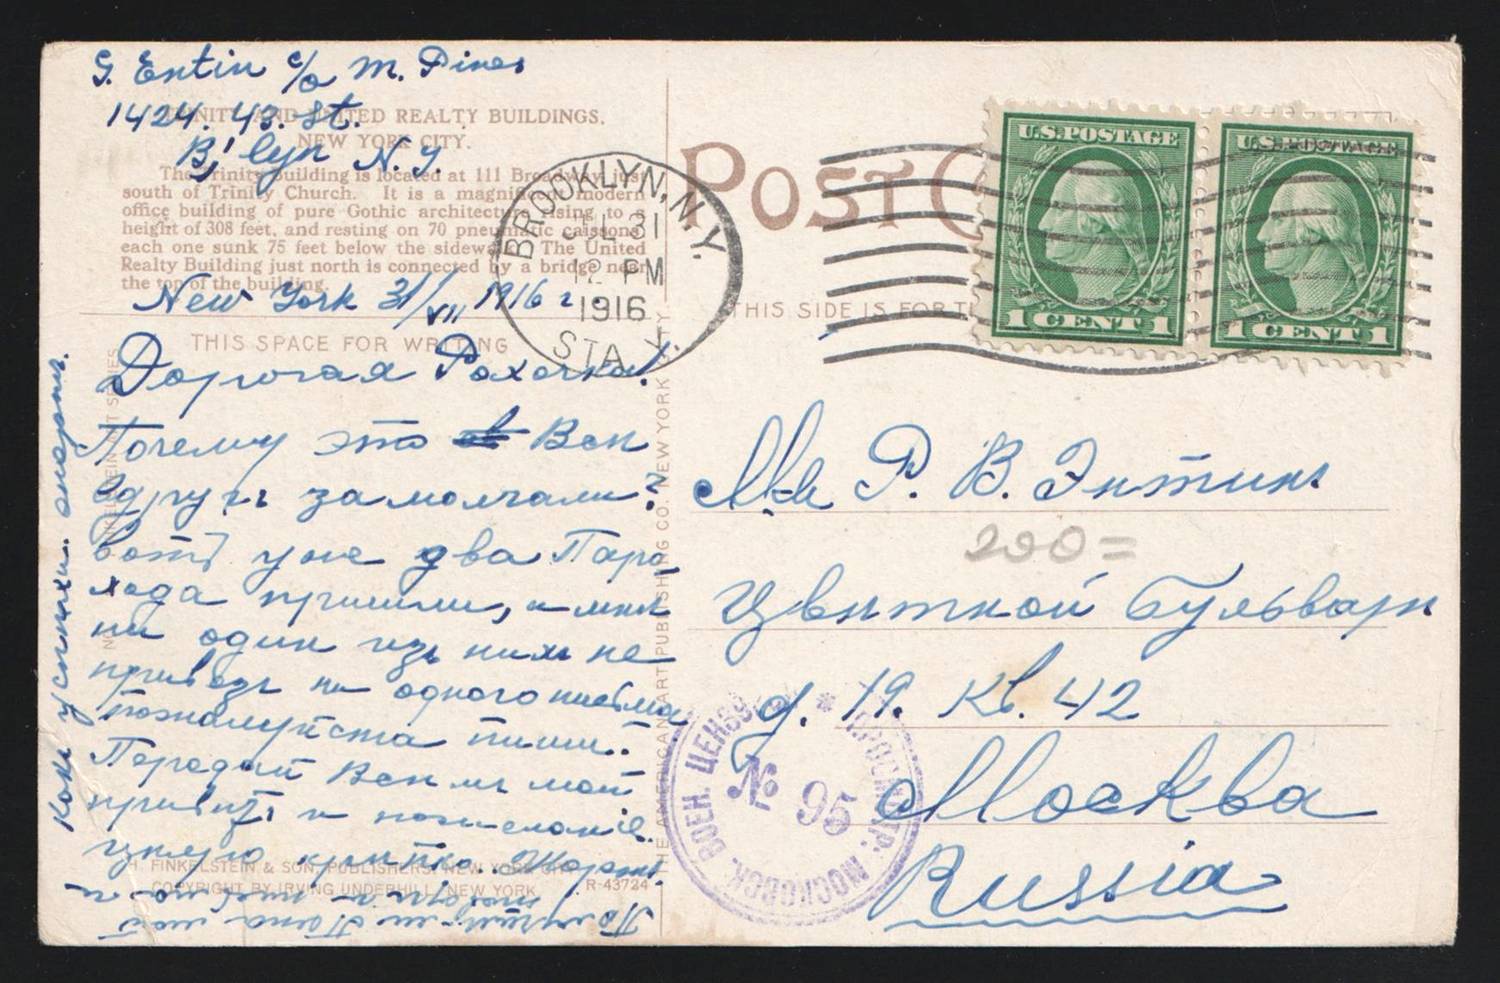 G. Entin c/o M. Pines
1424. 43. St.
B'lyn N. Y.
TRINITY AND UNITED REALTY BUILDINGS,
NEW YORK CITY.
The Trinity Building is located at 111 Broadway, just
south of Trinity Church. It is a magnificent modern
office building of pure Gothic architecture, rising to a
height of 308 feet, and resting on 70 pneumatic caissons,
each one sunk 75 feet below the sidewalk. The United
Realty Building just north is connected by a bridge near
the top of the building.
New York 31/VII 1916 г.
THIS SPACE FOR WRITING
Дорогая Рахочка!
Почему это Вы
вдругъ замолчали?
вотъ уже два Паро
хода пришли, и мнѣ
ни один изъ нихъ не
привезъ ни одного письма
пожалуйста пиши.
Передай мой
привѣтъ и пожеланіе.
цѣлую крѣпко.
H. FINKELSTEIN & SON, PUBLISHERS, NEW YORK CITY
COPYRIGHT BY IRVING UNDERHILL, NEW YORK.
R-43724
THE AMERICAN ART PUBLISHING CO. NEW YORK CITY.
BROOKLYN, N.Y.
JUL 31
12 PM
1916
STA. Y.
POST C
THIS SIDE IS FOR T
U.S. POSTAGE
1 CENT 1
U.S. POSTAGE
1 CENT 1
Р. В. Энтинъ
200=
Цвѣтной бульваръ
д. 19. Кв. 42
Москва
Russia
МОСКОВСК. ВОЕН. ЦЕНЗ
№ 95